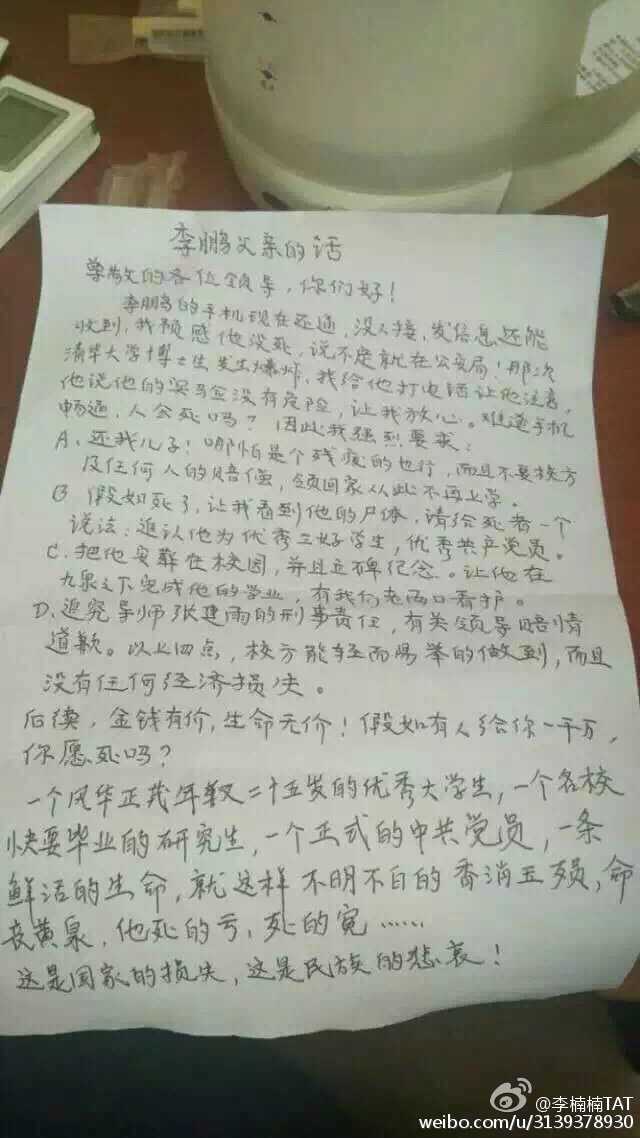 李鹏父亲的话
尊敬的各位领导，你们好！
李鹏的手机现在还通，没人接，发信息还能
收到，我预感他没死，说不定就在公安局！那次
清华大学博士生发生爆炸，我给他打电话让他注意，
他说他的实马佥没有危险，让我放心。难道手机
畅通，人会死吗？因此我强烈要求：
A、还我儿子！哪怕是个残废的也行，而且不要校方
及任何人的赔偿，领回家从此不再上学。
B 假如死了，让我看到他的尸体，请给死者一个
说法：追认他为优秀三好学生，优秀共产党员。
C.把他安葬在校园，并且立碑纪念。让他在
九泉之下完成他的学业，有我们老两口看护。
D、追究导师张建雨的刑事责任，有关领导赔情
道歉。以上四点，校方能轻而易举的做到，而且
没有任何经济损失。
后续，金钱有价，生命无价！假如有人给你一千万，
你愿死吗？
一个风华正茂年纪二十五岁的优秀大学生，一个名校
快要毕业的研究生，一个正式的中共党员，一条
鲜活的生命，就这样不明不白的香消玉殒，命
丧黄泉，他死的亏，死的冤……
这是国家的损失，这是民族的悲哀！
@李楠楠TAT
weibo.com/u/3139378930